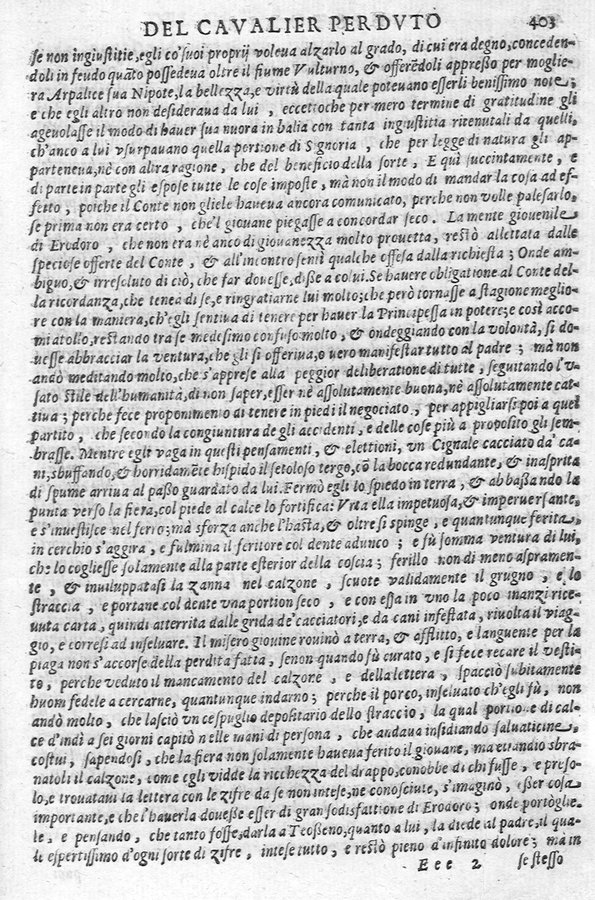 DEL CAVALIER PERDVTO 403
se non ingiustitie, egli co'suoi proprij voleua alzarlo al grado, di cui era degno, conceden-
doli in feudo quãto possedeua oltre il fiume Vulturno, & offerẽdoli appresso per moglie-
ra Arpalice sua Nipote, la bellezza, e virtù della quale poteuano esserli benissimo note;
e che egli altro non desideraua da lui , eccettoche per mero termine di gratitudine gli
ageuolasse il modo di hauer sua nuora in balia con tanta ingiustitia ritenutali da quelli,
ch'anco a lui vsurpauano quella portione di Signoria , che per legge di natura gli ap-
parteneua, nè con altra ragione , che del beneficio della sorte , E quì succintamente , e
di parte in parte gli espose tutte le cose imposte, mà non il modo di mandar la cosa ad ef-
fetto , poiche il Conte non gliele haueua ancora comunicato, perche non volle palesarlo,
se prima non era certo , che'l giouane piegasse a concordar seco . La mente giouenile
di Erodoro , che non era nè anco di giouanezza molto prouetta, restò allettata dalle
speciose offerte del Conte , & all'incontro sentì qualche offesa dalla richiesta ; Onde am-
biguo, & irresoluto di ciò, che far douesse, disse a colui. Se hauere obligatione al Conte del-
la ricordanza, che tenea di se, e ringratiarne lui molto; che però tornasse a stagione meglio-
re con la maniera, ch'egli sentiua di tenere per hauer la Principessa in potere; e così acco-
miatollo, restando tra se medesimo confuso molto, & ondeggiando con la volontà, si do-
uesse abbracciar la ventura, che gli si offeriua, o vero manifestar tutto al padre ; mà non
andò meditando molto, che s'apprese alla peggior deliberatione di tutte , seguitando l'v-
sato stile dell'humanità, di non saper, esser nè assolutamente buona, nè assolutamente cat-
tiua ; perche fece proponimento di tenere in piedi il negociato , per appigliarsi poi a quel
partito , che secondo la congiuntura de gli accidenti , e delle cose più a proposito gli sem-
brasse. Mentre egli vaga in questi pensamenti, & elettioni, vn Cignale cacciato da' ca-
ni, sbuffando, & horridamẽte hispido il setoloso tergo, cõ la bocca redundante, & inasprita
di spume arriua al passo guardato da lui. Fermò egli lo spiedo in terra , & abbassando la
punta verso la fiera, col piede al calce lo fortifica: Vrta ella impetuosa, & imperuersante,
e s'inuestisce nel ferro; mà sforza anche l'hasta, & oltre si spinge , e quantunque ferita,
in cerchio s'aggira , e fulmina il feritore col dente adunco ; e fù somma ventura di lui,
che lo cogliesse solamente alla parte esterior della coscia ; ferillo non di meno aspramen-
te , & inuiluppatasi la zanna nel calzone , scuote validamente il grugno , e lo
straccia , e portane col dente vna portion seco , e con essa in vno la poco inanzi rice-
uuta carta , quindi atterrita dalle grida de'cacciatori, e da cani infestata, riuolta il viag-
gio, e corresi ad inseluare. Il misero giouine rouinò a terra, & afflitto, e languente per la
piaga non s'accorse della perdita fatta, senon quando fù curato , e si fece recare il vesti-
to, perche veduto il mancamento del calzone , e della lettera , spacciò subitamente
huom fedele a cercarne, quantunque indarno ; perche il porco, inseluato ch'egli fù, non
andò molto , che lasciò vn cespuglio depositario dello straccio, la qual portione di cal-
ce d'indi a sei giorni capitò nelle mani di persona , che andaua insidiando saluaticine.
costui, sapendosi, che la fiera non solamente haueua ferito il giouane, ma etiandio sbra-
natoli il calzone, come egli vidde la ricchezza del drappo, conobbe di chi fusse , e preso-
lo, e trouataui la lettera con le zifre da se non intese, ne conosciute, s'imaginò , esser cosa
importante, e che l'hauerla douesse esser di gran sodisfattione di Erodoro ; onde portòglie-
le, e pensando , che tanto fosse, darla a Teosseno, quanto a lui , la diede al padre, il qua-
le espertissimo d'ogni sorte di zifre , intese tutto , e restò pieno d'infinito dolore ; mà in
Eee 2 se stesso